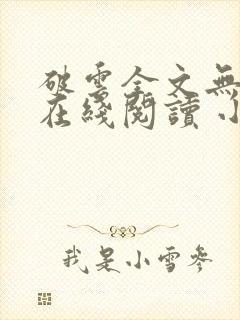 破雲全文無
在綫閱讀 小
我是小雪參